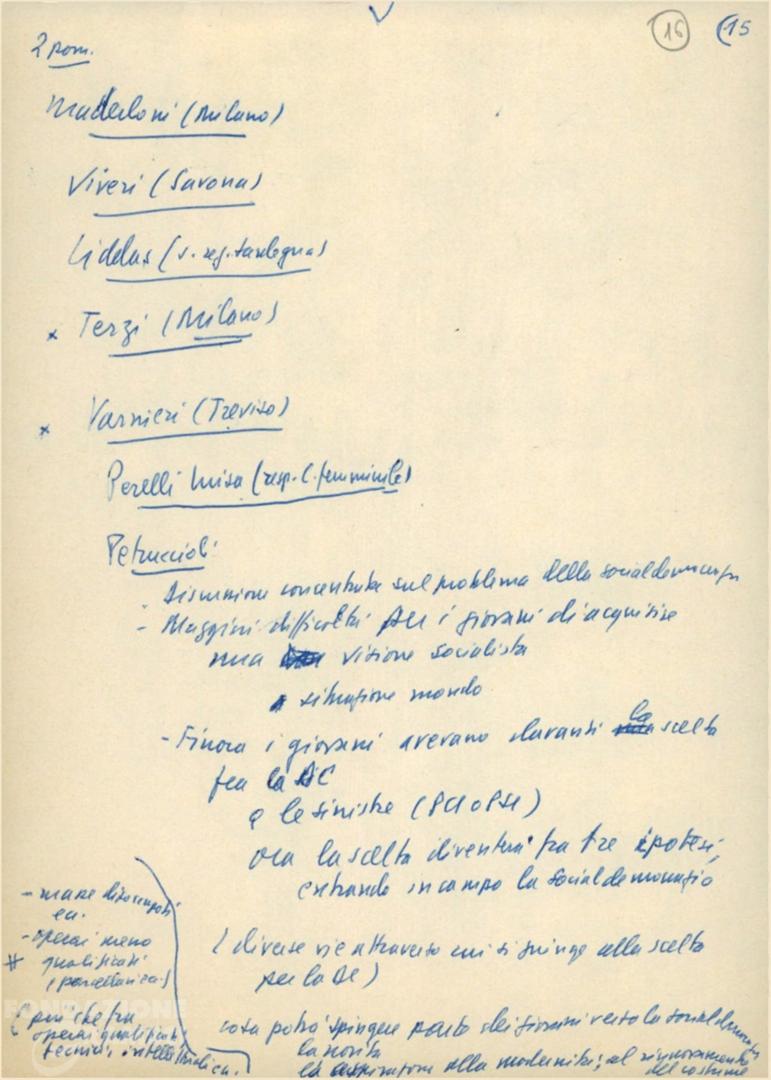 16 15
2 pom.
Maderloni (Milano)
Viveri (Savona)
Liddas (s. reg. Sardegna)
x Terzi (Milano)
x Varnieri (Treviso)
Perelli Luisa (resp. C. femminile)
Petruccioli
- Discussione concentrata sul problema della socialdemocrazia
- Maggiori difficoltà per i giovani di acquisire
una visione socialista
situazione mondo
- Finora i giovani avevano davanti la scelta
fra la DC
e le sinistre (PCI o PSI)
ora la scelta diventa fra tre ipotesi,
entrando in campo la socialdemocrazia
(diverse vie attraverso cui si giunge alla scelta
per la DC)
cosa potrà spingere parte dei giovani verso la socialdemocrazia
la novità
la aspirazione alla modernità; al rinnovamento
del costume
- masse disoccupati
ecc.
- operai meno
# qualificati
(porcellanica)
(più che fra
operai qualificati
tecnici intellettuali ca.
FONDAZIONE